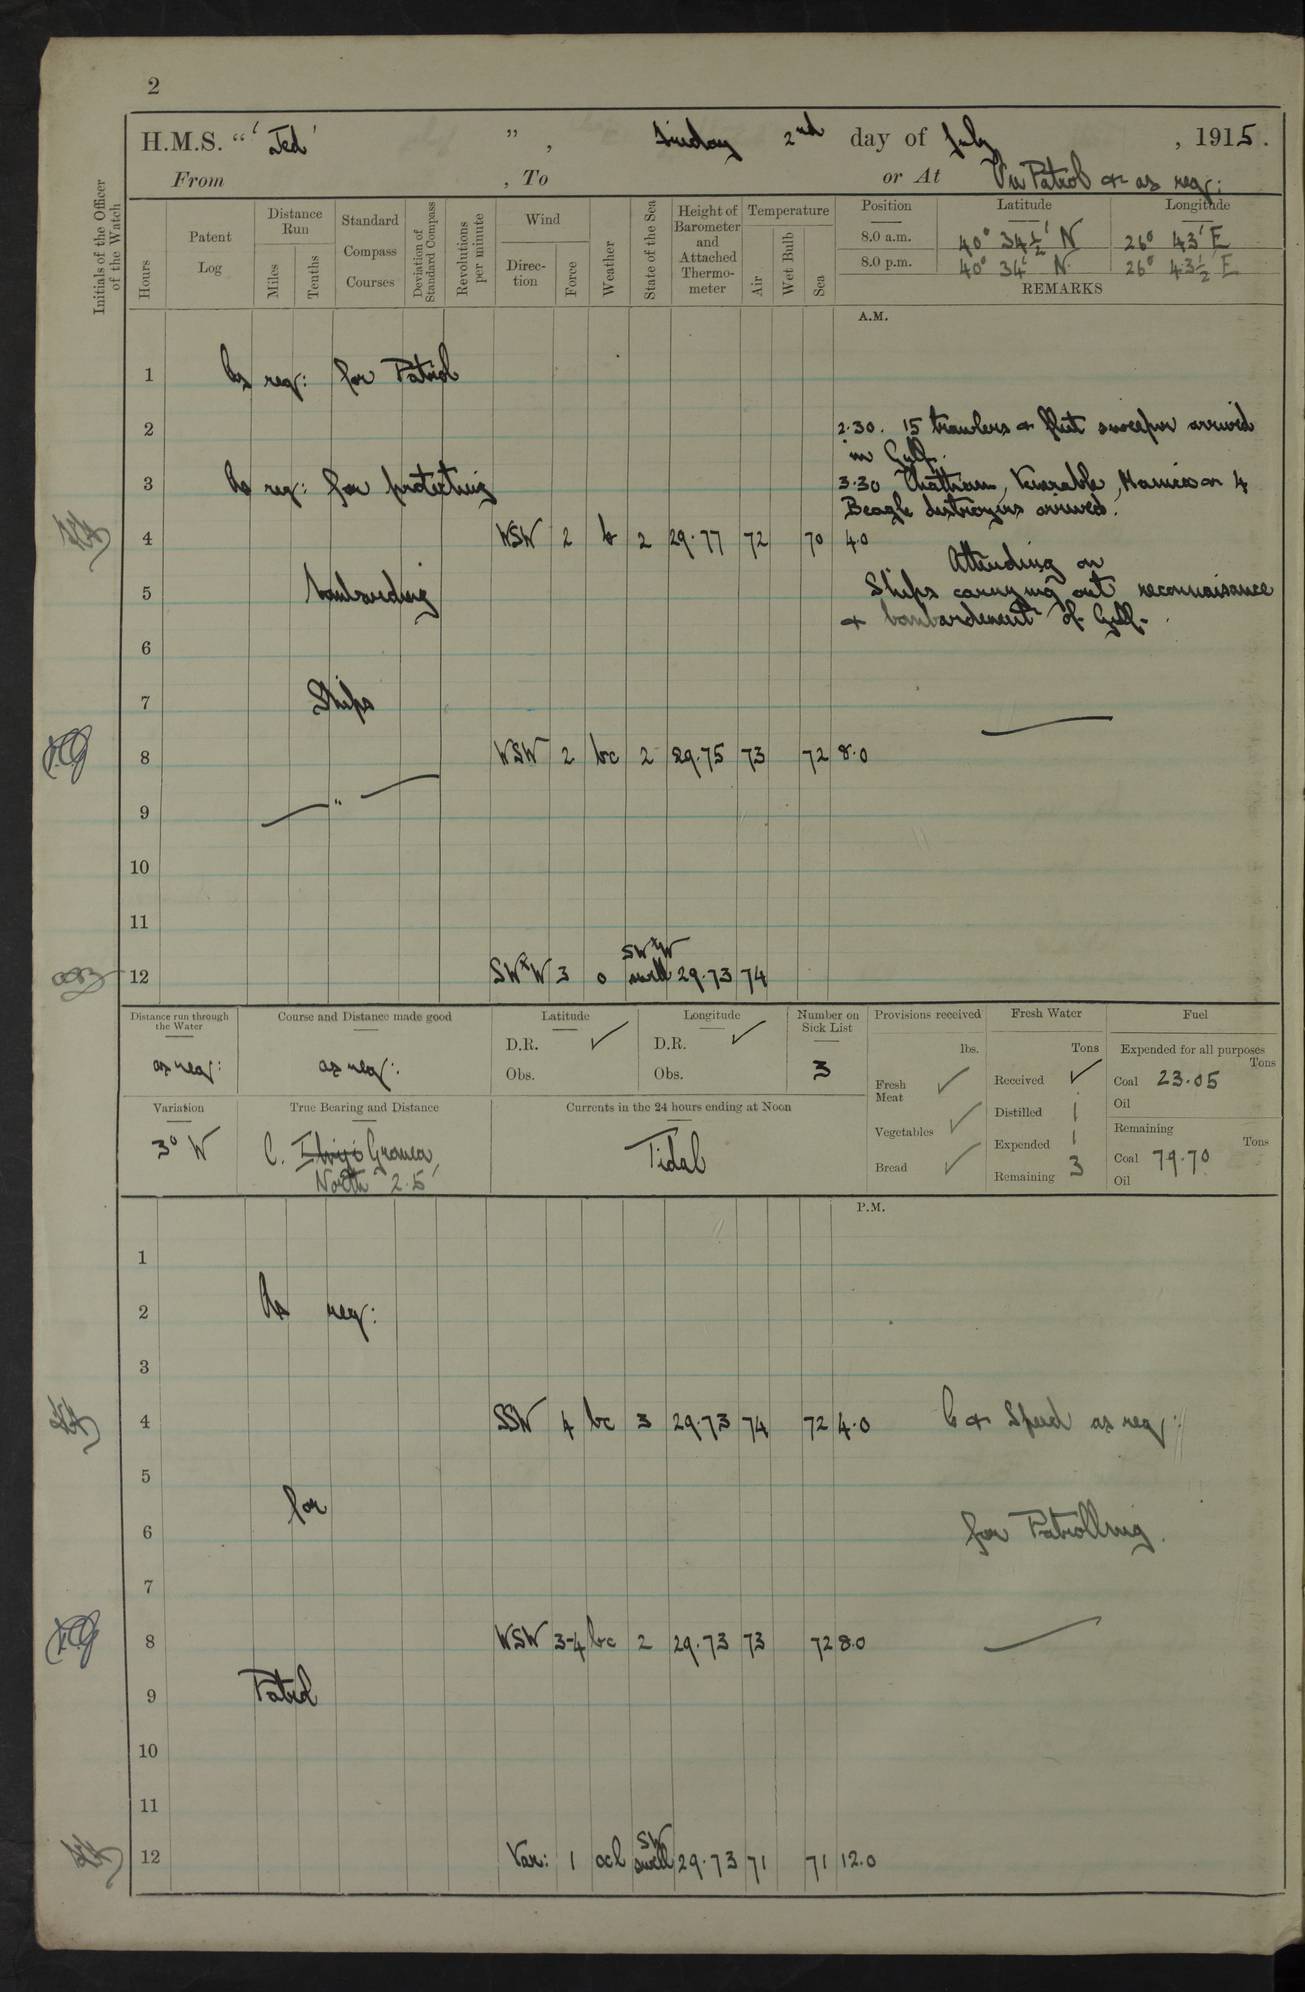 2
H.M.S. “ 'Jed' ” , Friday 2nd day of July , 1915.
From , To or At On Patrol & as req:
Initials of the Officer of the Watch
Hours
Patent Log
Distance Run
Miles
Tenths
Standard Compass Courses
Deviation of Standard Compass
Revolutions per minute
Wind
Direction
Force
Weather
State of the Sea
Height of Barometer and Attached Thermometer
Temperature
Air
Wet Bulb
Sea
Position Latitude Longitude
8.0 a.m. 40° 34½' N 26° 43' E
8.0 p.m. 40° 34' N 26° 43½' E
REMARKS
A.M.
1 As req: for Patrol
2 2.30. 15 trawlers & fleet sweeper arrived
in Gulf.
3 As req: for protecting 3.30 Chatham, Venerable, Manica & 4
Beagle destroyers arrived.
4 WSW 2 b 2 29.77 72 70 4.0
Attending on
5 bombarding Ships carrying out reconnaisance
& bombardement of Gulf.
6
7 Ships
8 WSW 2 bc 2 29.75 73 72 8.0
9 "
10
11
12 SWxW 3 o SWxW swell 29.73 74
Distance run through the Water
as req:
Course and Distance made good
as req:
Latitude
D.R. ✓
Obs.
Longitude
D.R. ✓
Obs.
Number on Sick List
3
Provisions received
lbs.
Fresh Meat ✓
Vegetables ✓
Bread ✓
Fresh Water
Tons
Received ✓
Distilled 1
Expended 1
Remaining 3
Fuel
Expended for all purposes
Tons
Coal 23.05
Oil
Remaining
Tons
Coal 79.70
Oil
Variation
3° W
True Bearing and Distance
C. Gremea
North 2.5'
Currents in the 24 hours ending at Noon
Tidal
P.M.
1
2 As req:
3
4 SSW 4 bc 3 29.73 74 72 4.0 C & Speed as req:
5
for
6 for Patrolling.
7
8 WSW 3-4 bc 2 29.73 73 72 8.0
9 Patrol
10
11
12 Var: 1 ocl SW swell 29.73 71 71 12.0